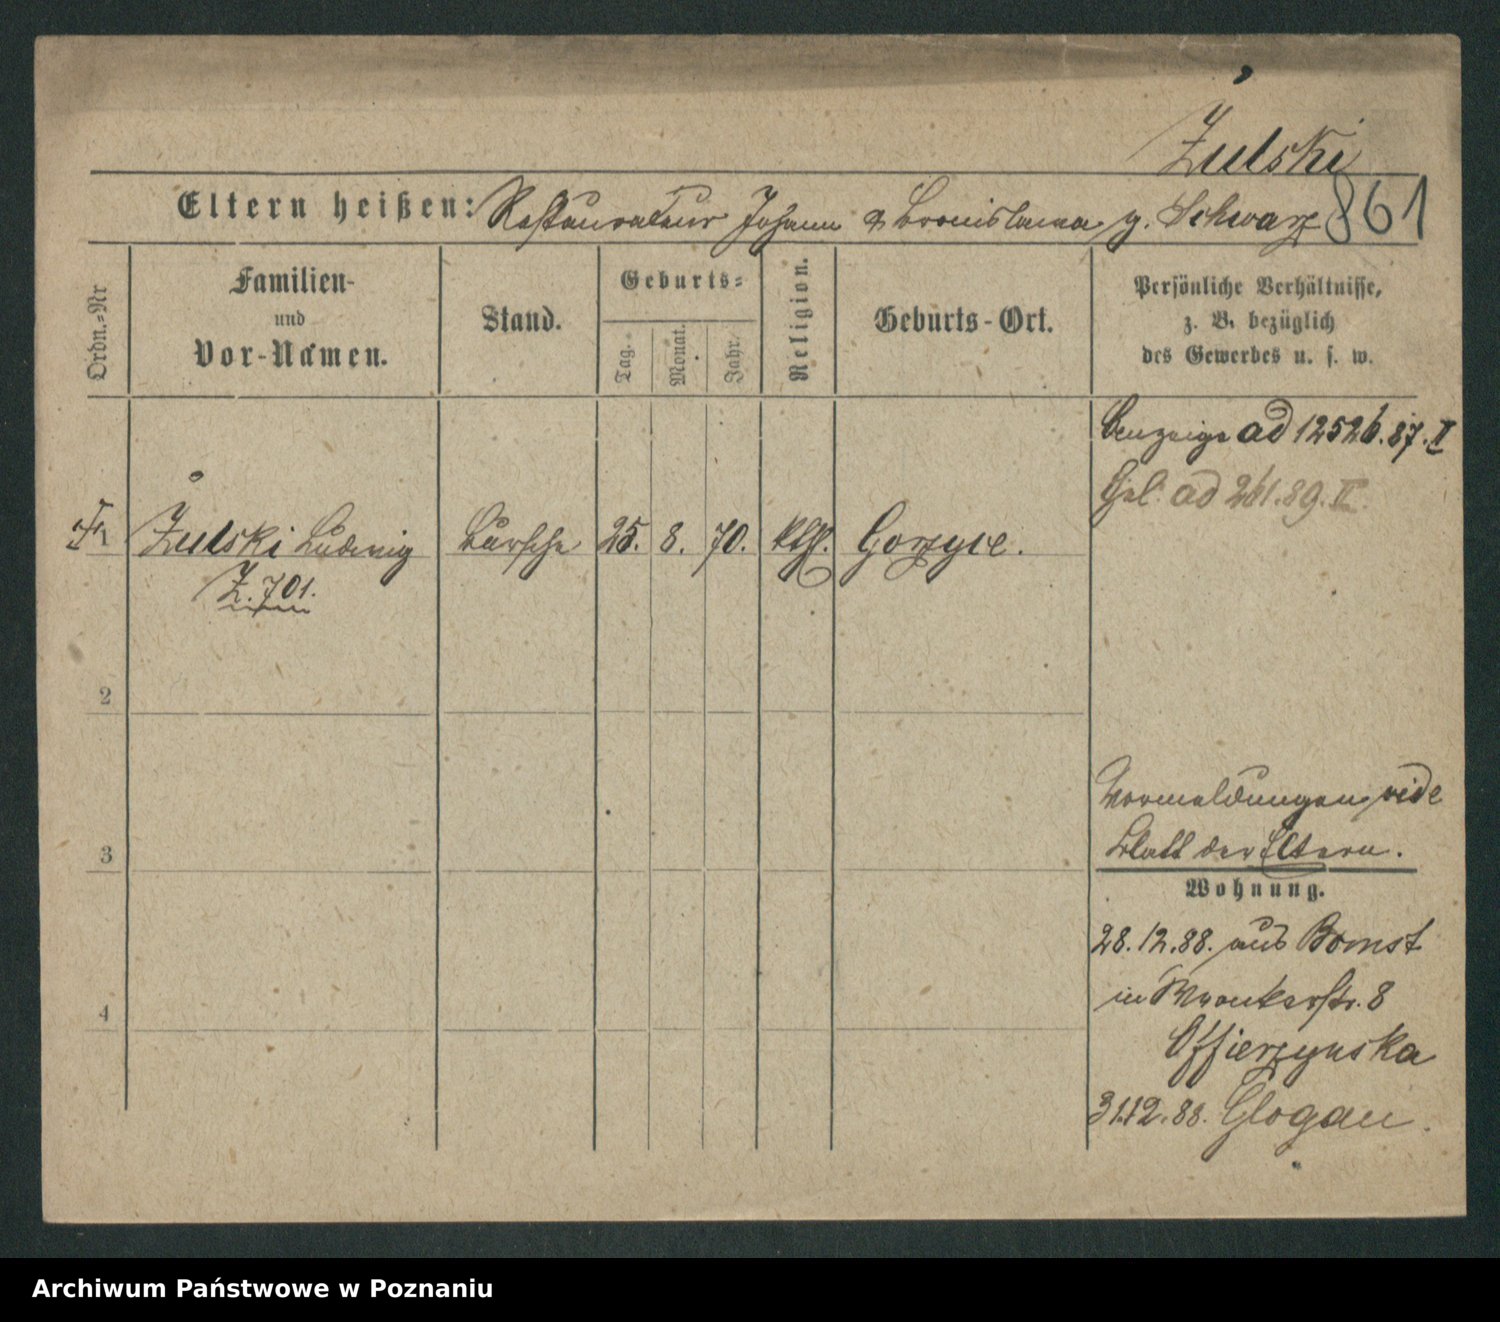 Żulski
Eltern heißen: Restaurateur Johann & Bronislawa g. Schwarz 861
Ordn.=Nr
Familien-
und
Vor-Namen.
Stand.
Geburts=
Tag.
Monat.
Jahr.
Religion.
Geburts-Ort.
Persönliche Verhältnisse,
z. B. bezüglich
des Gewerbes u. s. w.
ad 12526.87.II
ad 261.89.II.
Żulski Ludwig Bursche 25. 8. 70. kth. Gorzyce.
Z. 701.
2
3
4
Vormeldungen vide
Blatt der Eltern.
Wohnung.
28.12.88. aus Bomst
in Wronkerstr. 8
Offierzynska
31.12.88. Glogau.
Archiwum Państwowe w Poznaniu